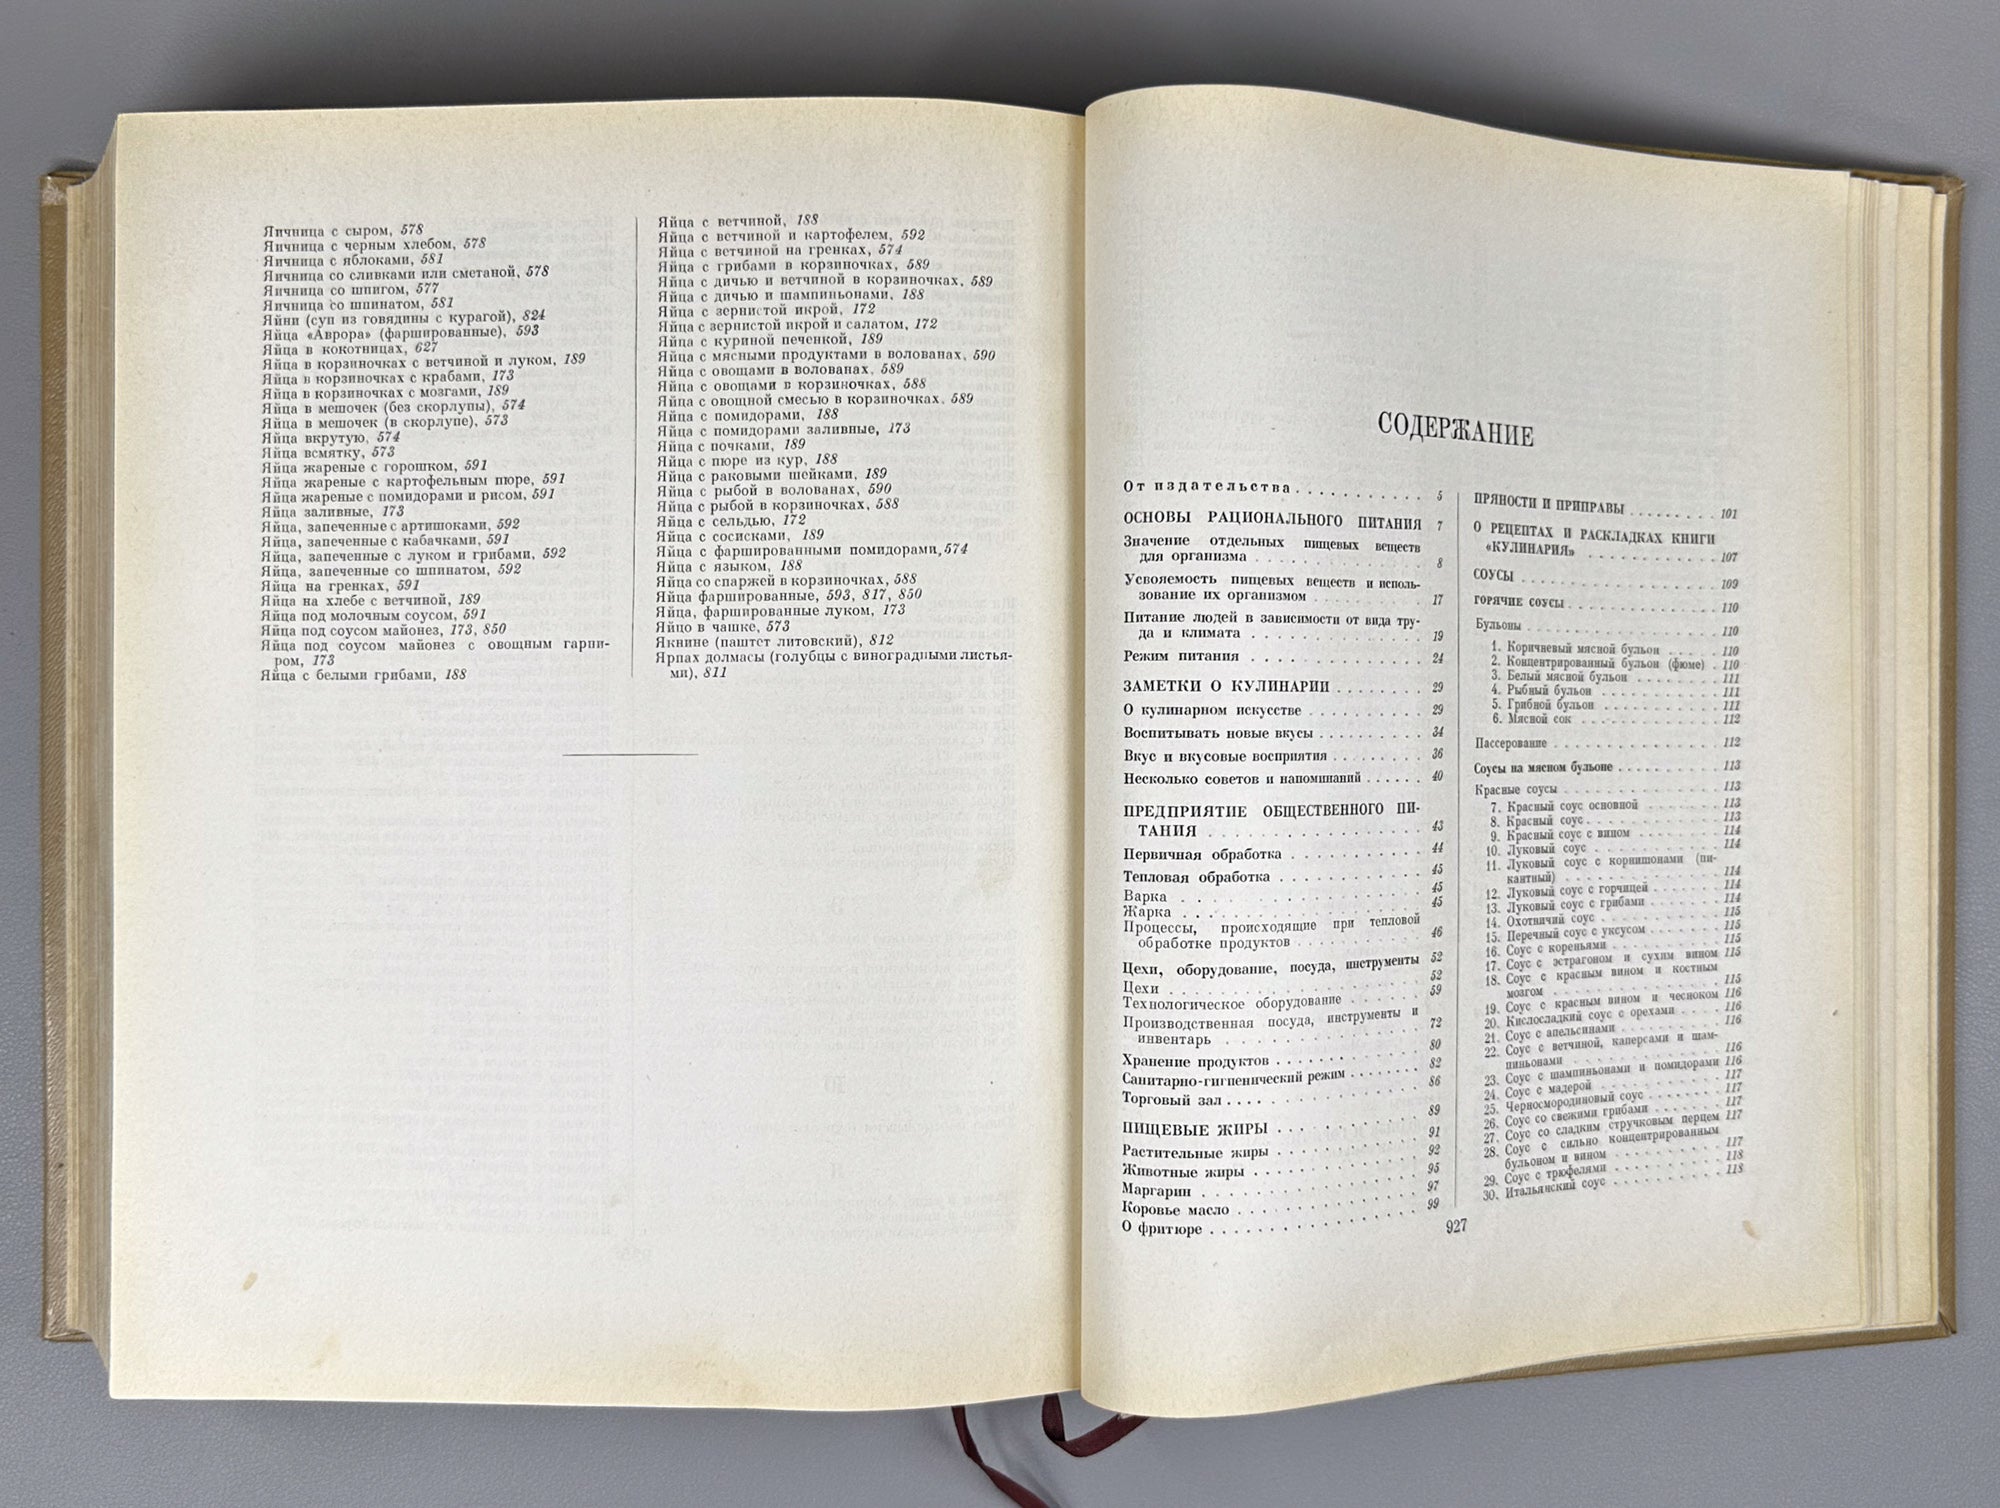 Яичница с сыром, 578
Яичница с черным хлебом, 578
Яичница с яблоками, 581
Яичница со сливками или сметаной, 578
Яичница со шпигом, 577
Яичница со шпинатом, 581
Яйни (суп из говядины с курагой), 824
Яйца «Аврора» (фаршированные), 593
Яйца в кокотницах, 627
Яйца в корзиночках с ветчиной и луком, 189
Яйца в корзиночках с крабами, 173
Яйца в корзиночках с мозгами, 189
Яйца в мешочек (без скорлупы), 574
Яйца в мешочек (в скорлупе), 573
Яйца вкрутую, 574
Яйца всмятку, 573
Яйца жареные с горошком, 591
Яйца жареные с картофельным пюре, 591
Яйца жареные с помидорами и рисом, 591
Яйца заливные, 173
Яйца, запеченные с артишоками, 592
Яйца, запеченные с кабачками, 591
Яйца, запеченные с луком и грибами, 592
Яйца, запеченные со шпинатом, 592
Яйца на гренках, 591
Яйца на хлебе с ветчиной, 189
Яйца под молочным соусом, 591
Яйца под соусом майонез, 173, 850
Яйца под соусом майонез с овощным гарни-
ром, 173
Яйца с белыми грибами, 188
Яйца с ветчиной, 188
Яйца с ветчиной и картофелем, 592
Яйца с ветчиной на гренках, 574
Яйца с грибами в корзиночках, 589
Яйца с дичью и ветчиной в корзиночках, 589
Яйца с дичью и шампиньонами, 188
Яйца с зернистой икрой, 172
Яйца с зернистой икрой и салатом, 172
Яйца с куриной печенкой, 189
Яйца с мясными продуктами в волованах, 590
Яйца с овощами в волованах, 589
Яйца с овощами в корзиночках, 588
Яйца с овощной смесью в корзиночках, 589
Яйца с помидорами, 188
Яйца с помидорами заливные, 173
Яйца с почками, 189
Яйца с пюре из кур, 188
Яйца с раковыми шейками, 189
Яйца с рыбой в волованах, 590
Яйца с рыбой в корзиночках, 588
Яйца с сельдью, 172
Яйца с сосисками, 189
Яйца с фаршированными помидорами, 574
Яйца с языком, 188
Яйца со спаржей в корзиночках, 588
Яйца фаршированные, 593, 817, 850
Яйца, фаршированные луком, 173
Яйцо в чашке, 573
Якнине (паштет литовский), 812
Ярпах долмасы (голубцы с виноградными листья-
ми), 811
СОДЕРЖАНИЕ
От издательства . . . . . . . . . . . 5
ОСНОВЫ РАЦИОНАЛЬНОГО ПИТАНИЯ 7
Значение отдельных пищевых веществ
для организма . . . . . . . . . . . . 8
Усвояемость пищевых веществ и исполь-
зование их организмом . . . . . . . . 17
Питание людей в зависимости от вида тру-
да и климата . . . . . . . . . . . . 19
Режим питания . . . . . . . . . . . . 24
ЗАМЕТКИ О КУЛИНАРИИ . . . . . . . 29
О кулинарном искусстве . . . . . . . . 29
Воспитывать новые вкусы . . . . . . . 34
Вкус и вкусовые восприятия . . . . . . 36
Несколько советов и напоминаний . . . . 40
ПРЕДПРИЯТИЕ ОБЩЕСТВЕННОГО ПИ-
ТАНИЯ . . . . . . . . . . . . . . 43
Первичная обработка . . . . . . . . . 44
Тепловая обработка . . . . . . . . . . 45
Варка . . . . . . . . . . . . . . . 45
Жарка . . . . . . . . . . . . . . . 45
Процессы, происходящие при тепловой
обработке продуктов . . . . . . . . . 46
Цехи, оборудование, посуда, инструменты 52
Цехи . . . . . . . . . . . . . . . . 52
Технологическое оборудование . . . . . 59
Производственная посуда, инструменты и
инвентарь . . . . . . . . . . . . . . 72
Хранение продуктов . . . . . . . . . . 80
Санитарно-гигиенический режим . . . . . 82
Торговый зал . . . . . . . . . . . . . 86
ПИЩЕВЫЕ ЖИРЫ . . . . . . . . . . 89
Растительные жиры . . . . . . . . . . 91
Животные жиры . . . . . . . . . . . . 92
Маргарин . . . . . . . . . . . . . . 95
Коровье масло . . . . . . . . . . . . 97
О фритюре . . . . . . . . . . . . . . 99
ПРЯНОСТИ И ПРИПРАВЫ . . . . . . . . 101
О РЕЦЕПТАХ И РАСКЛАДКАХ КНИГИ
«КУЛИНАРИЯ» . . . . . . . . . . . . 107
СОУСЫ . . . . . . . . . . . . . . . 109
ГОРЯЧИЕ СОУСЫ . . . . . . . . . . . 110
Бульоны . . . . . . . . . . . . . . . 110
1. Коричневый мясной бульон . . . . . 110
2. Концентрированный бульон (фюме) . 110
3. Белый мясной бульон . . . . . . . . 111
4. Рыбный бульон . . . . . . . . . . . 111
5. Грибной бульон . . . . . . . . . . . 111
6. Мясной сок . . . . . . . . . . . . . 112
Пассерование . . . . . . . . . . . . . 112
Соусы на мясном бульоне . . . . . . . . 113
Красные соусы . . . . . . . . . . . . 113
7. Красный соус основной . . . . . . . 113
8. Красный соус . . . . . . . . . . . . 113
9. Красный соус с вином . . . . . . . . 114
10. Луковый соус . . . . . . . . . . . . 114
11. Луковый соус с корнишонами (пи-
кантный) . . . . . . . . . . . . . . 114
12. Луковый соус с горчицей . . . . . . 114
13. Луковый соус с грибами . . . . . . . 114
14. Охотничий соус . . . . . . . . . . . 115
15. Перечный соус с уксусом . . . . . . 115
16. Соус с кореньями . . . . . . . . . . 115
17. Соус с эстрагоном и сухим вином 115
18. Соус с красным вином и костным
мозгом . . . . . . . . . . . . . . . 115
19. Соус с красным вином и чесноком 116
20. Кислосладкий соус с орехами . . . . 116
21. Соус с апельсинами . . . . . . . . . 116
22. Соус с ветчиной, каперсами и шам-
пиньонами . . . . . . . . . . . . . 116
23. Соус с шампиньонами и помидорами 116
24. Соус с мадерой . . . . . . . . . . . 117
25. Черносмородиновый соус . . . . . . . 117
26. Соус со свежими грибами . . . . . . 117
27. Соус со сладким стручковым перцем 117
28. Соус с сильно концентрированным
бульоном и вином . . . . . . . . . . 117
29. Соус с трюфелями . . . . . . . . . . 118
30. Итальянский соус . . . . . . . . . . 118
927